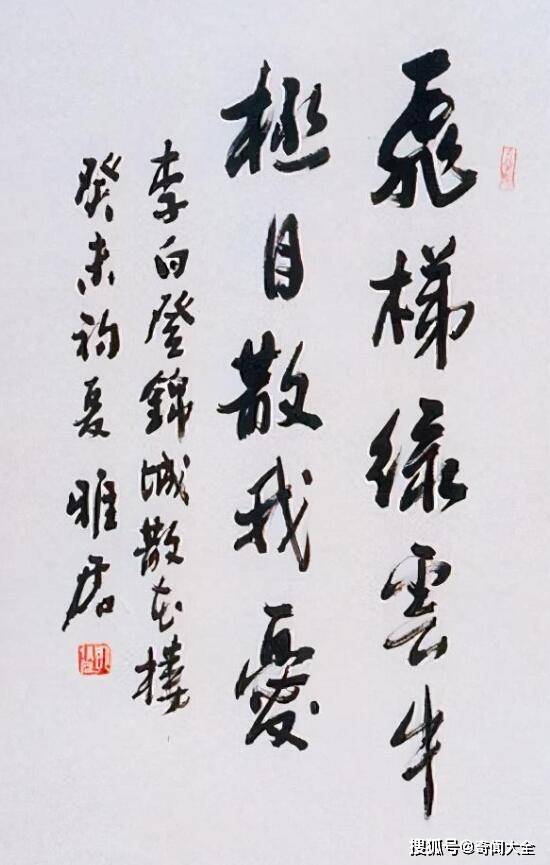 飛梯綠雲中
極目散我憂
李白登錦城散花樓
癸未初夏 雅君
搜狐号@奇闻大全